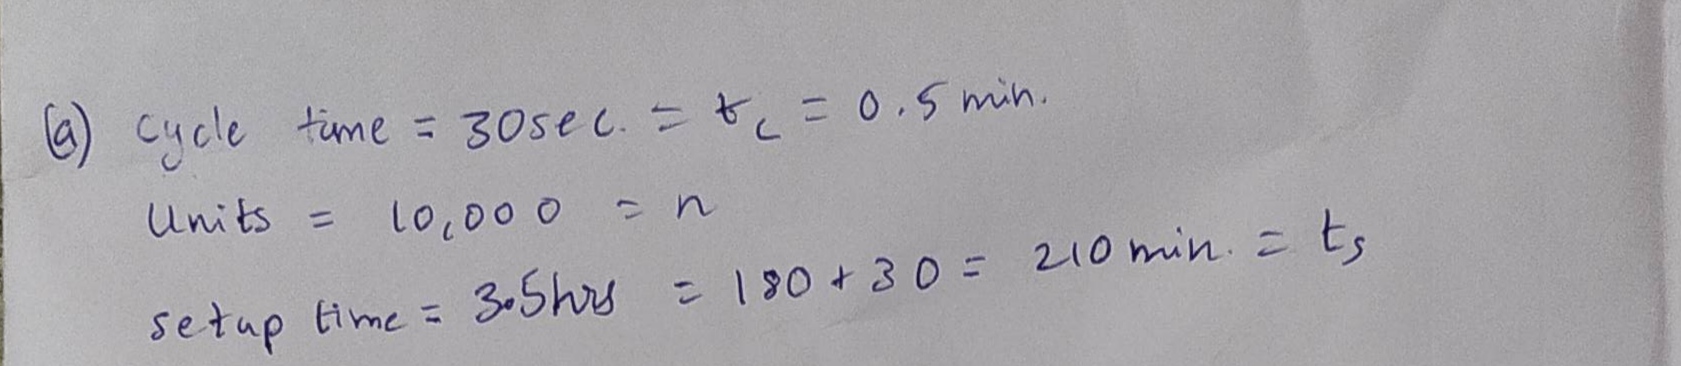 (a) cycle time = 30sec. = tc = 0.5 min.
Units = 10,000 = n
setup time = 3.5hrs = 180 + 30 = 210 min. = ts